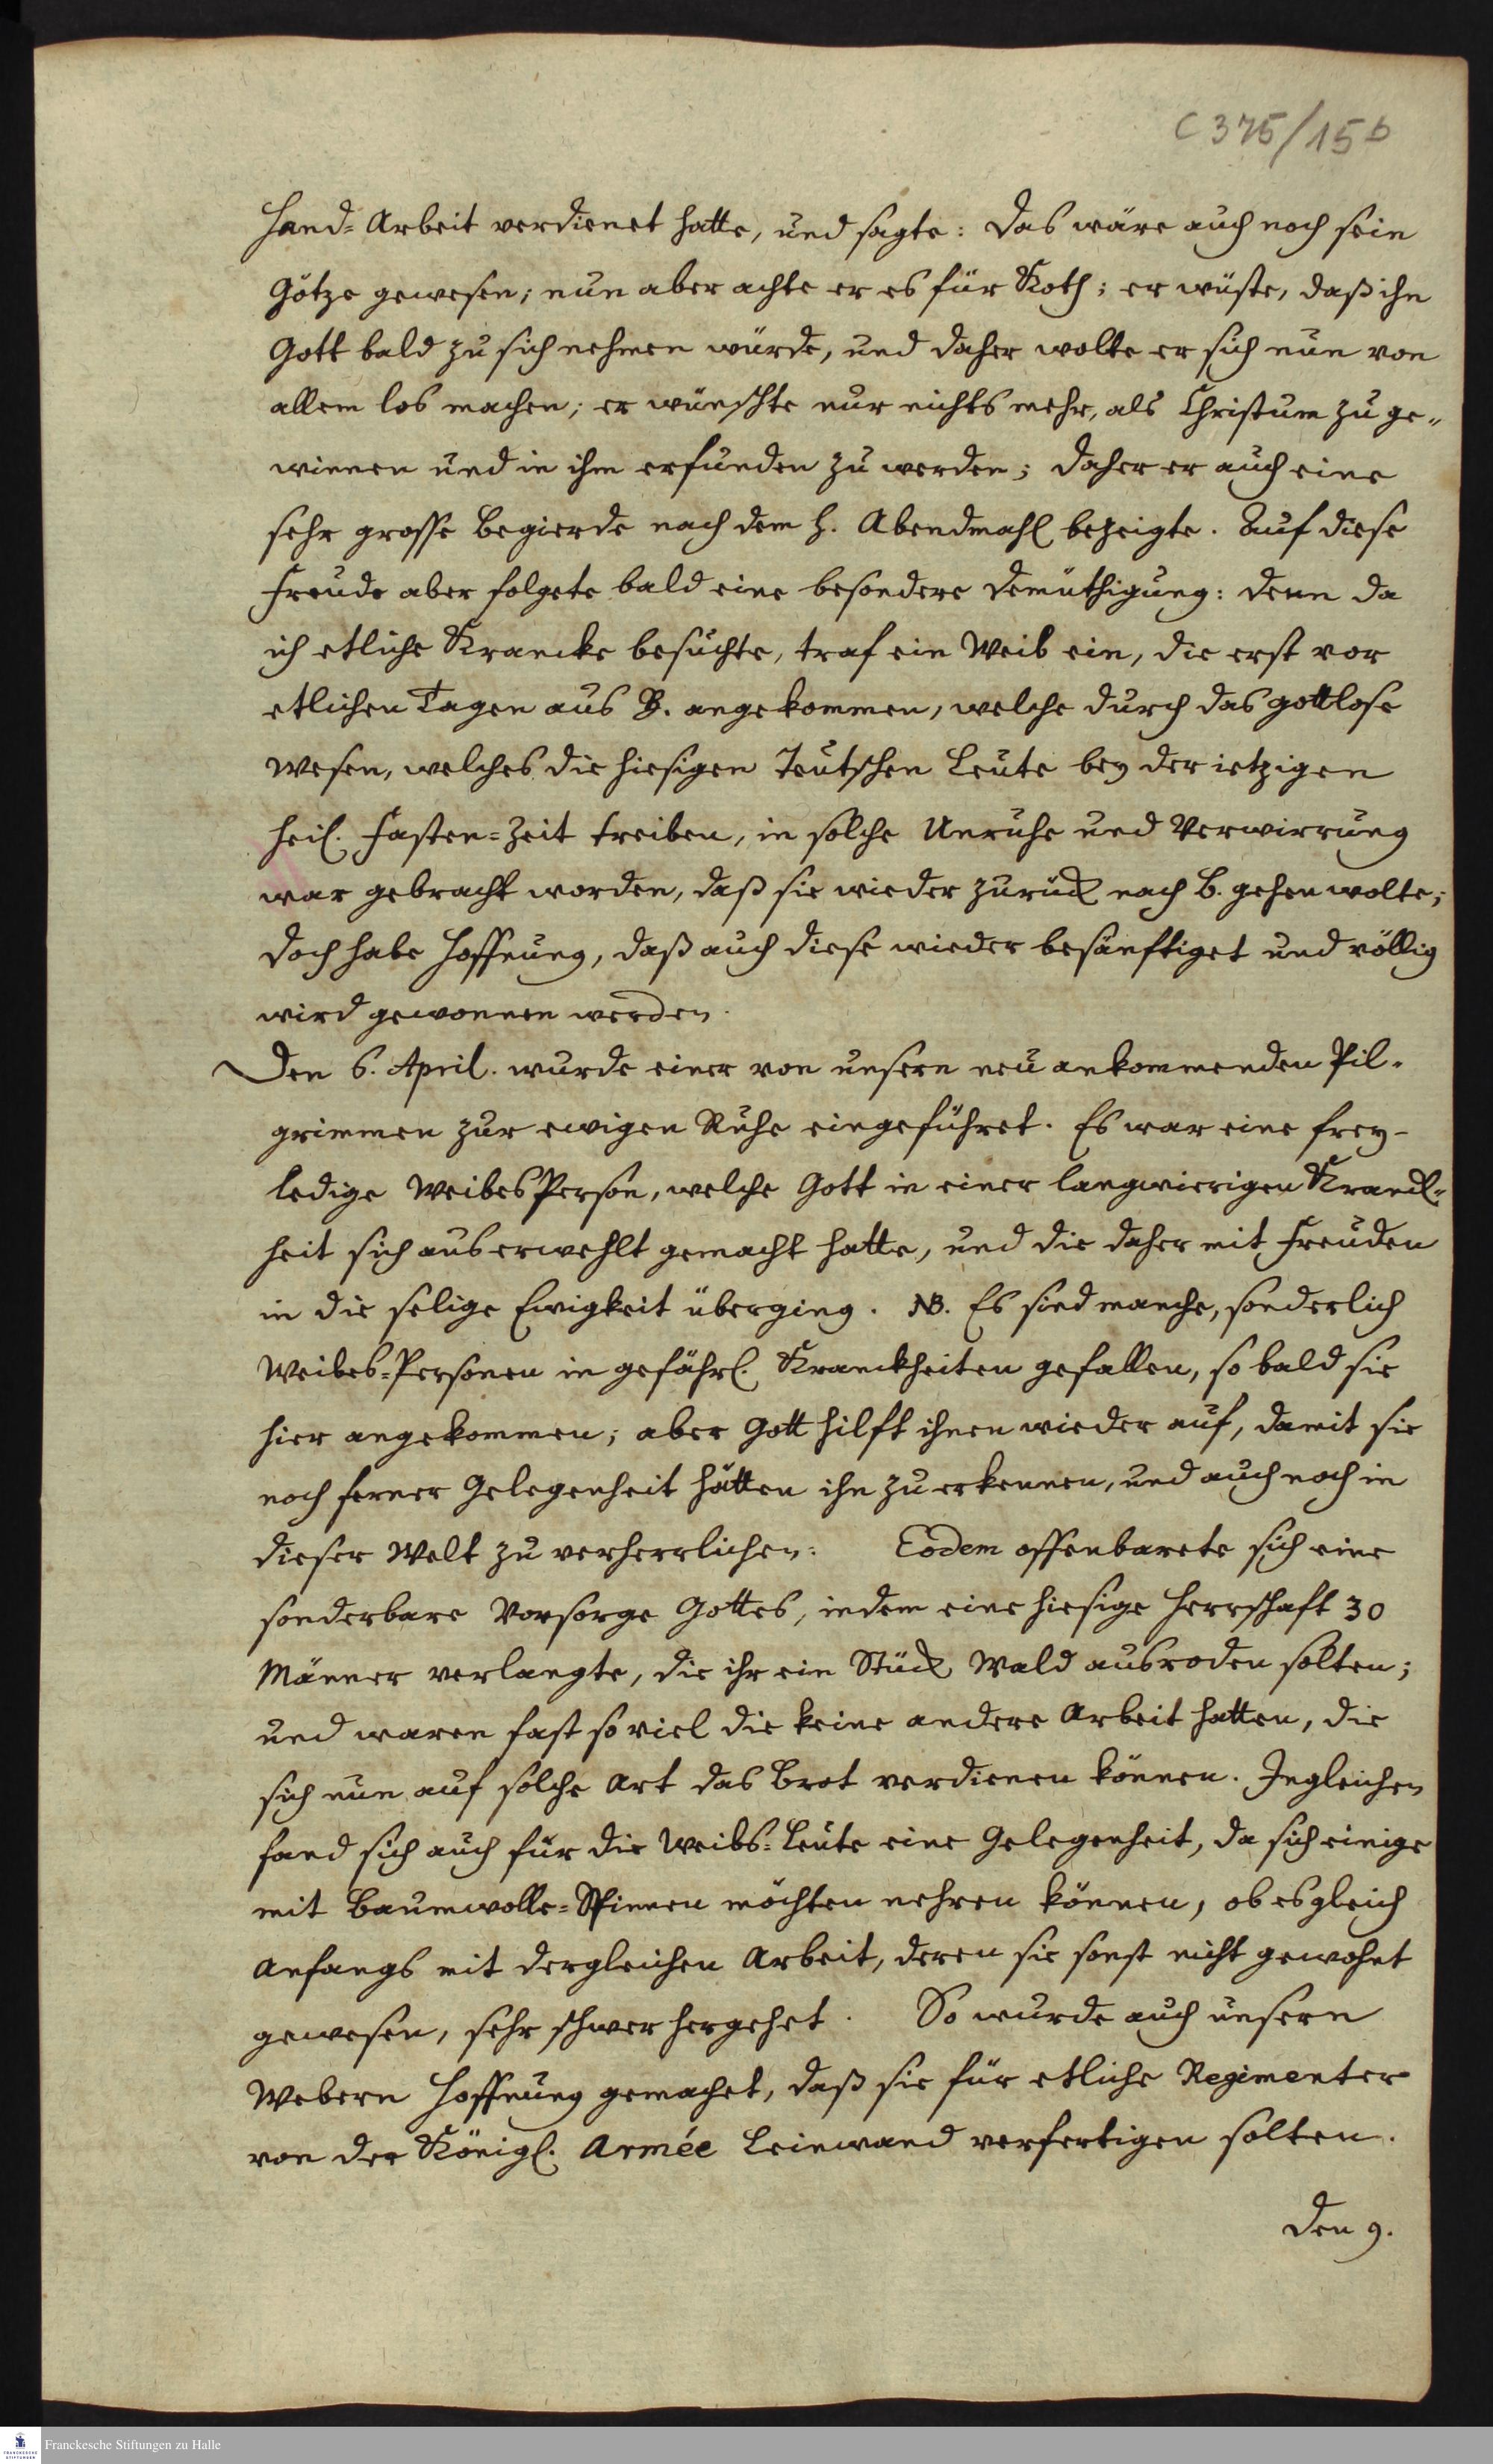 C 375/15b
Hand-Arbeit verdienet hatte, und sagte: Das wäre auch noch sein
Götze gewesen; nun aber achte er es für Koth; er wüste, daß ihn
Gott bald zu sich nehmen würde, und daher wolte er sich nun von
allem los machen; er wünschte nur nichts mehr, als Christum zu ge-
winnen und in ihm erfunden zu werden; daher er auch eine
sehr grosse Begierde nach dem H. Abendmahl bezeigte. Auf diese
Freude aber folgete bald eine besondere Demüthigung: denn da
ich etliche Krancke besuchte, traf ein Weib ein, die erst vor
etlichen Tagen aus B. angekommen, welche durch das gottlose
Wesen, welches die hiesigen Teutschen Leute bey der ietzigen
heil. Fasten-Zeit treiben, in solche Unruhe und Verwirrung
war gebracht worden, daß sie wieder zurück nach B. gehen wolte;
doch habe Hoffnung, daß auch diese wieder besänftiget und völlig
wird gewonnen werden.
Den 6. April. wurde einer von unsern neu ankommenden Pil-
grimmen zur ewigen Ruhe eingeführet. Es war eine frey-
ledige Weibes Person, welche Gott in einer langwierigen Kranck-
heit sich auserwehlt gemacht hatte, und die daher mit Freuden
in die selige Ewigkeit überging. NB. Es sind manche, sonderlich
Weibes-Personen in gefährl. Kranckheiten gefallen, so bald sie
hier angekommen; aber Gott hilft ihnen wieder auf, damit sie
noch ferner Gelegenheit hätten ihn zu erkennen, und auch noch in
dieser Welt zu verherrlichen. Eodem offenbarete sich eine
sonderbare Vorsorge Gottes, indem eine hiesige Herrschaft 30
Männer verlangte, die ihr ein Stück Wald ausroden solten;
und waren fast so viel die keine andere Arbeit hatten, die
sich nun auf solche Art das Brot verdienen können. Ingleichen
fand sich auch für die Weibs-Leute eine Gelegenheit, da sich einige
mit Baumwolle-Spinnen möchten nehren können, ob es gleich
Anfangs mit dergleichen Arbeit, deren sie sonst nicht gewohnt
gewesen, sehr schwer hergehet. So wurde auch unsern
Webern Hoffnung gemachet, daß sie für etliche Regimenter
von der Königl. Armée Leinwand verfertigen solten.
Den 9.
FRANCKESCHE STIFTUNGEN
Franckesche Stiftungen zu Halle